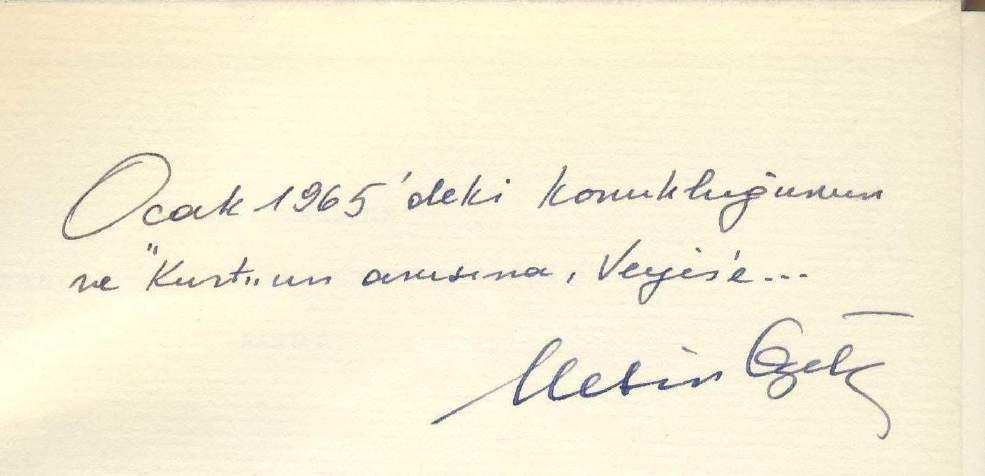 Ocak 1965'deki konukluğunun
ve "Kurt"un anısına, Veysis'e...
Metin